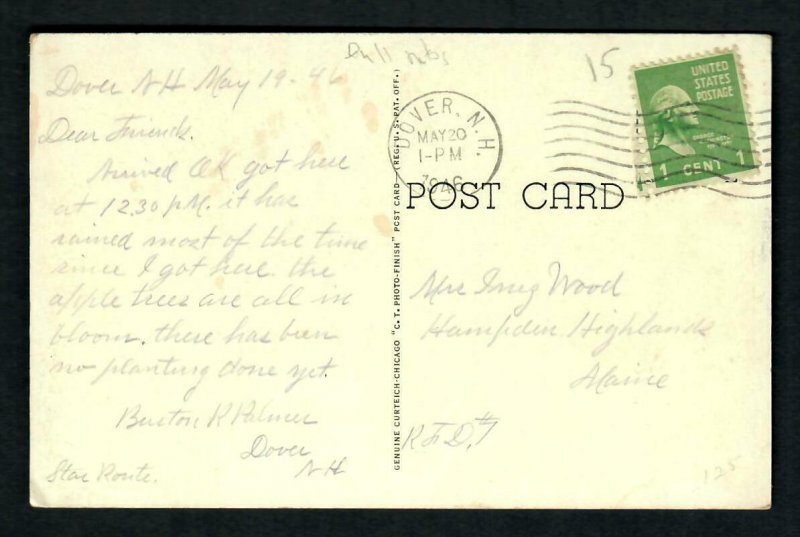 Dover NH May 19-46
Dear Friends.
Arrived OK got here
at 12.30 P.M. it has
rained most of the time
since I got here. the
apple trees are all in
bloom. there has been
no planting done yet.
Burton R Palmer
Dover
NH
Star Route.
GENUINE CURTEICH-CHICAGO "C. T. PHOTO-FINISH" POST CARD (REG. U. S. PAT. OFF.)
15
DOVER, N.H.
MAY 20
1-PM
1946
UNITED
STATES
POSTAGE
1 CENT 1
POST CARD
Mrs Inez Wood
Hampden Highlands
Maine
RFD#1
125